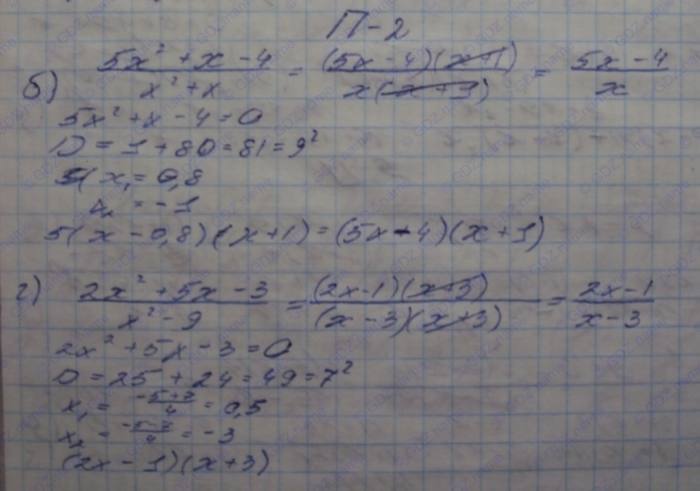 П-2
б) (5x² + x - 4)/(x² + x) = ((5x - 4)(x + 1))/(x(x + 1)) = (5x - 4)/x
5x² + x - 4 = 0
D = 1 + 80 = 81 = 9²
x₁ = 0,8
x₂ = -1
5(x - 0,8)(x + 1) = (5x - 4)(x + 1)
г) (2x² + 5x - 3)/(x² - 9) = ((2x - 1)(x + 3))/((x - 3)(x + 3)) = (2x - 1)/(x - 3)
2x² + 5x - 3 = 0
D = 25 + 24 = 49 = 7²
x₁ = (-5+7)/4 = 0,5
x₂ = (-5-7)/4 = -3
(2x - 1)(x + 3)